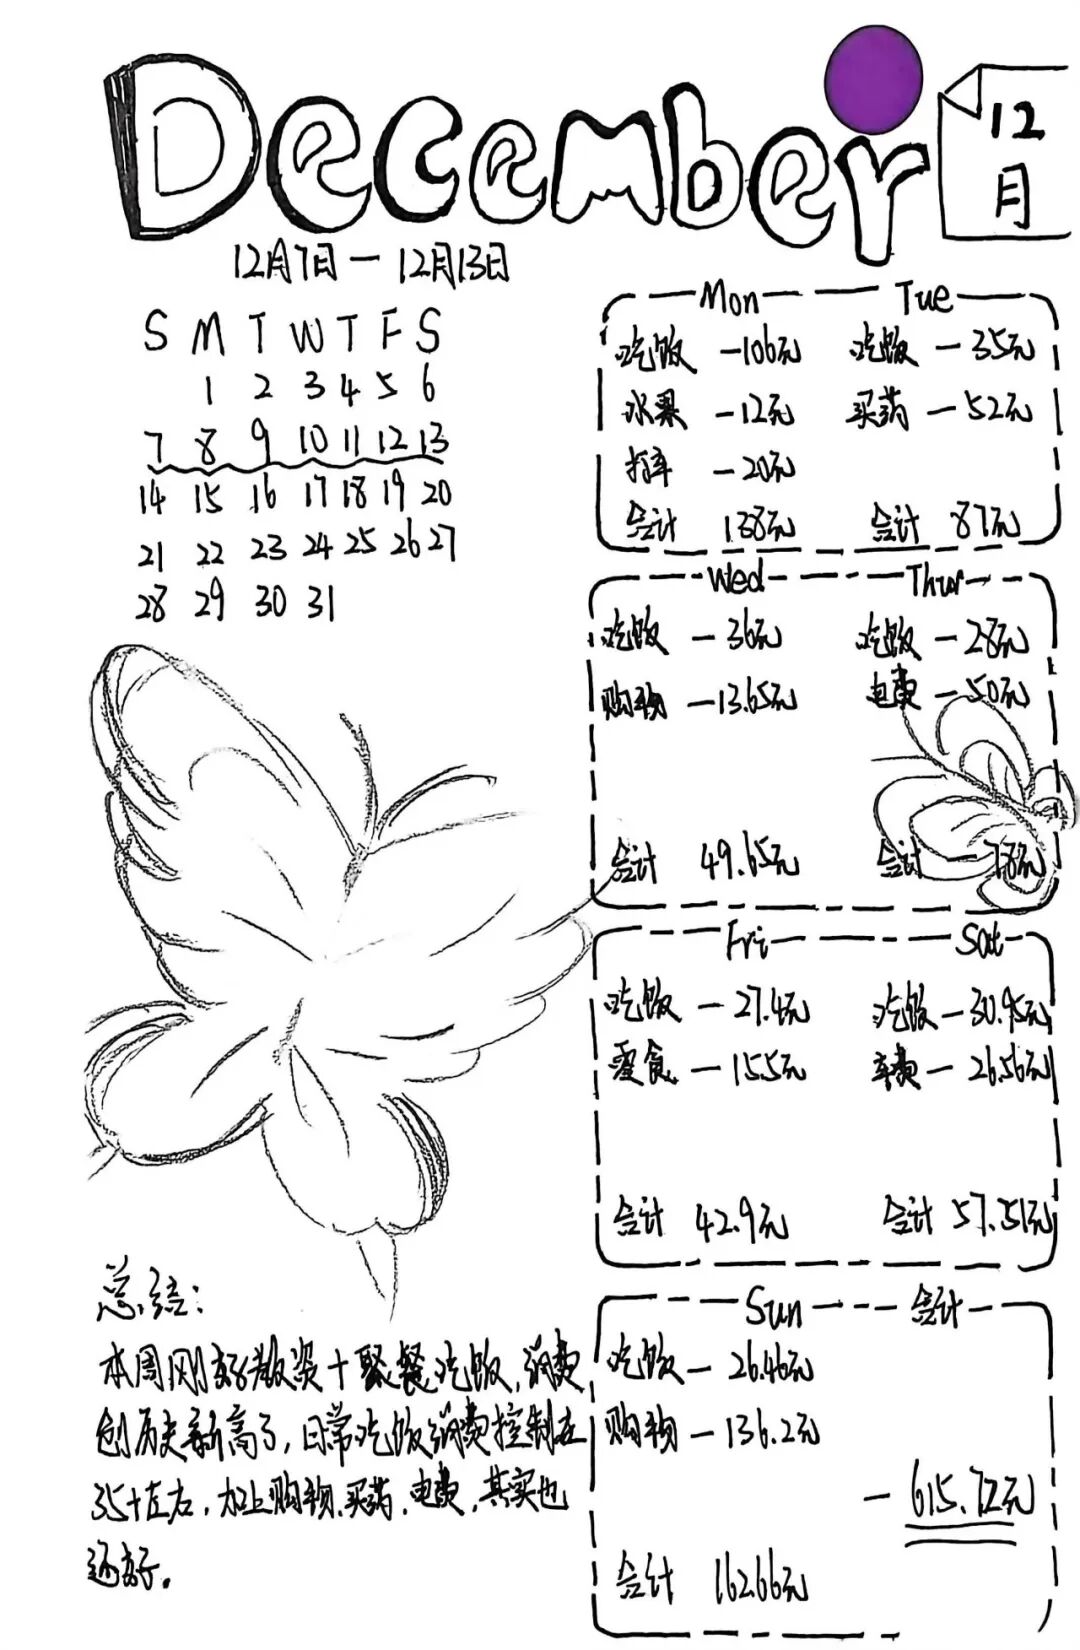 December
12
月
12月7日一12月13日
S M T W T F S
1 2 3 4 5 6
7 8 9 10 11 12 13
14 15 16 17 18 19 20
21 22 23 24 25 26 27
28 29 30 31
Mon Tue
吃饭 -106元 吃饭 -35元
水果 -12元 买药 -52元
打车 -20元
合计 138元 合计 87元
Wed Thur
吃饭 -36元 吃饭 -28元
购物 -13.65元 电费 -50元
合计 49.65元 合计 78元
Fri Sat
吃饭 -27.4元 吃饭 -30.95元
零食 -15.5元 车费 -26.56元
合计 42.9元 合计 57.51元
Sun 合计
吃饭 -26.46元
购物 -136.2元
-615.72元
合计 162.66元
总结:
本周刚好散资+聚餐吃饭,消费
创历史新高了,日常吃饭消费控制在
35+左右,加上购物.买药.电费,其实也
还好。